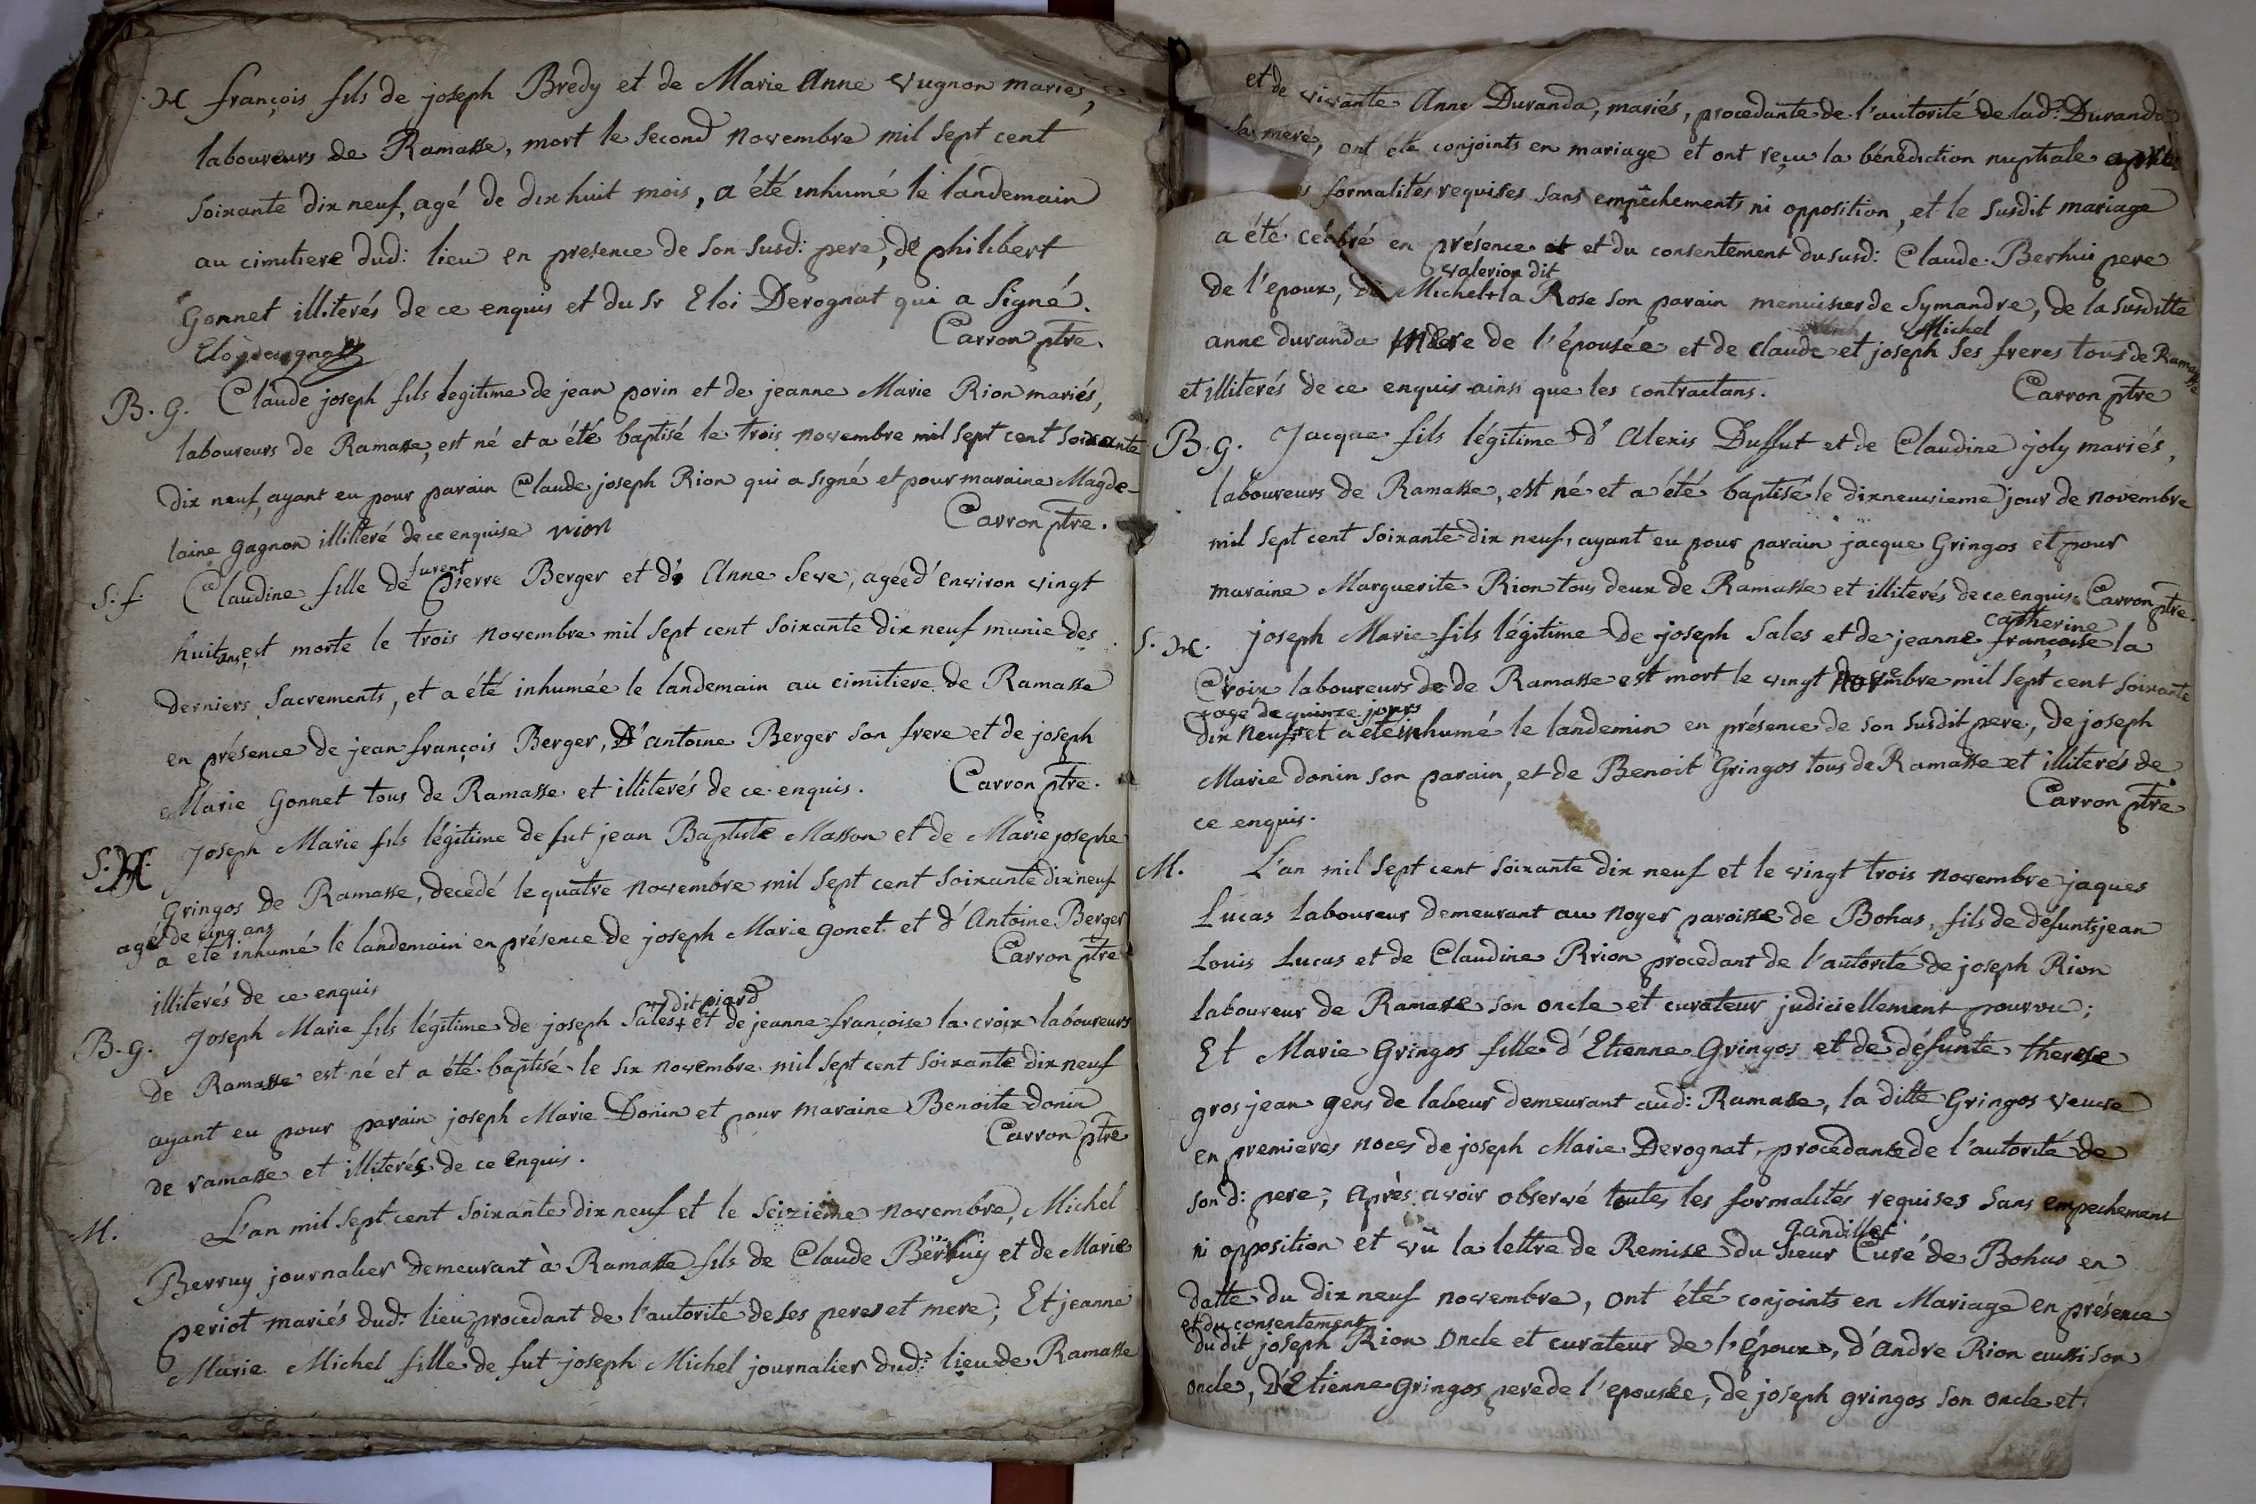 M françois fils de joseph Bredy et de Marie Anne vugnon mariés,
laboureurs de Ramasse, mort le second novembre mil sept cent
soixante dix neuf, agé de dix huit mois, a été inhumé le landemain
au cimitiere dud: lieu en presence de son susd: pere, de philibert
Gonnet illiterés de ce enquis et du Sr Eloi Derognat qui a signé.
Carron ptre.
Eloy derognat
B. g. Claude joseph fils legitime de jean porin et de jeanne Marie Rion mariés,
laboureurs de Ramasse, est né et a été baptisé le trois novembre mil sept cent soixante
dix neuf, ayant eu pour parain Claude joseph Rion qui a signé et pour maraine Magde-
laine gagnon illiteré de ce enquise rion Carron ptre.
furent
S. f. Claudine fille de pierre Berger et d' Anne Seve, agée d'environ vingt
huit ans, est morte le trois novembre mil sept cent soixante dix neuf munie des
derniers sacrements, et a été inhumée le landemain au cimitiere de Ramasse
en présence de jean françois Berger, D'antoine Berger son frere et de joseph
Marie Gonnet tous de Ramasse et illiterés de ce enquis. Carron ptre.
S. M. Joseph Marie fils légitime de fut jean Baptiste Masson et de Marie josephe
Gringos de Ramasse, decedé le quatre novembre mil sept cent soixante dix neuf
agé de cinq ans
a été inhumé le landemain en présence de joseph Marie gonet et d'Antoine Berger
Carron ptre
illiterés de ce enquis
+ dit piard
B. g. Joseph Marie fils légitime de joseph Sales + et de jeanne françoise la croix laboureurs
de Ramasse est né et a été baptisé le six novembre mil sept cent soixante dix neuf
ayant eu pour parain joseph Marie Donin et pour maraine Benoite donin
Carron ptre
de ramasse et illiterés de ce enquis.
M. L'an mil sept cent soixante dix neuf et le seizieme novembre, Michel
Berruy journalier demeurant à Ramasse fils de Claude Berhuy et de Marie
periot mariés dud: lieu procedant de l'autorité de ses peres et mere; Et jeanne
Marie Michel fille de fut joseph Michel journalier dud: lieu de Ramasse
et de vivante Anne Duranda, mariés, procedante de l'autorité de lad: Duranda
sa mere, ont été conjoints en mariage et ont reçu la bénédiction nuptiale après
formalités requises sans empêchements ni opposition, et le susdit mariage
a été célébré en présence et du consentement du susd: Claude Berhui pere
valerion dit
de l'epoux, de Michel + la Rose son parain menuisier de Symandre, de la susditte
Michel
anne duranda mere de l'épousée et de claude et joseph ses freres tous de Ramasse
et illiterés de ce enquis ainsi que les contractans. Carron ptre
B. g. Jacque fils légitime d'Alexis Duffut et de Claudine joly mariés,
laboureurs de Ramasse, est né et a été baptisé le dixneuvieme jour de novembre
mil sept cent soixante dix neuf, ayant eu pour parain jacque Gringos et pour
maraine Marguerite Rion tous deux de Ramasse et illiterés de ce enquis. Carron ptre.
catherine
S. M. joseph Marie fils légitime de joseph Sales et de jeanne françoise la
Croix laboureurs de de Ramasse est mort le vingt novembre mil sept cent soixante
+ agé de quinze jours
dix neuf + et a été inhumé le landemin en présence de son susdit pere, de joseph
Marie donin son parain, et de Benoit Gringos tous de Ramasse et illiterés de
Carron ptre
ce enquis.
M. L'an mil sept cent soixante dix neuf et le vingt trois novembre jaques
Lucas laboureur demeurant au Noyer paroisse de Bohas, fils de défunts jean
Louis Lucas et de Claudine Rrion procedant de l'autorité de joseph Rion
laboureur de Ramasse son oncle et curateur judiciellement pourvu;
Et Marie Gringos fille d'Etienne Gringos et de défunte therese
gros jean gens de labeur demeurant aud: Ramasse, la ditte Gringos veuve
en premieres noces de joseph Marie Derognat, procédante de l'autorité de
son d: pere; après avoir observé toutes les formalités requises sans empechement
gandillet
ni opposition et vû la lettre de Remise du sieur Curé de Bohas en
datte du dix neuf novembre, ont été conjoints en Mariage en présence
et du consentement
dudit joseph Rion oncle et curateur de l'époux, d'andre Rion aussi son
oncle, d'Etienne gringos pere de l'epousée, de joseph gringos son oncle et